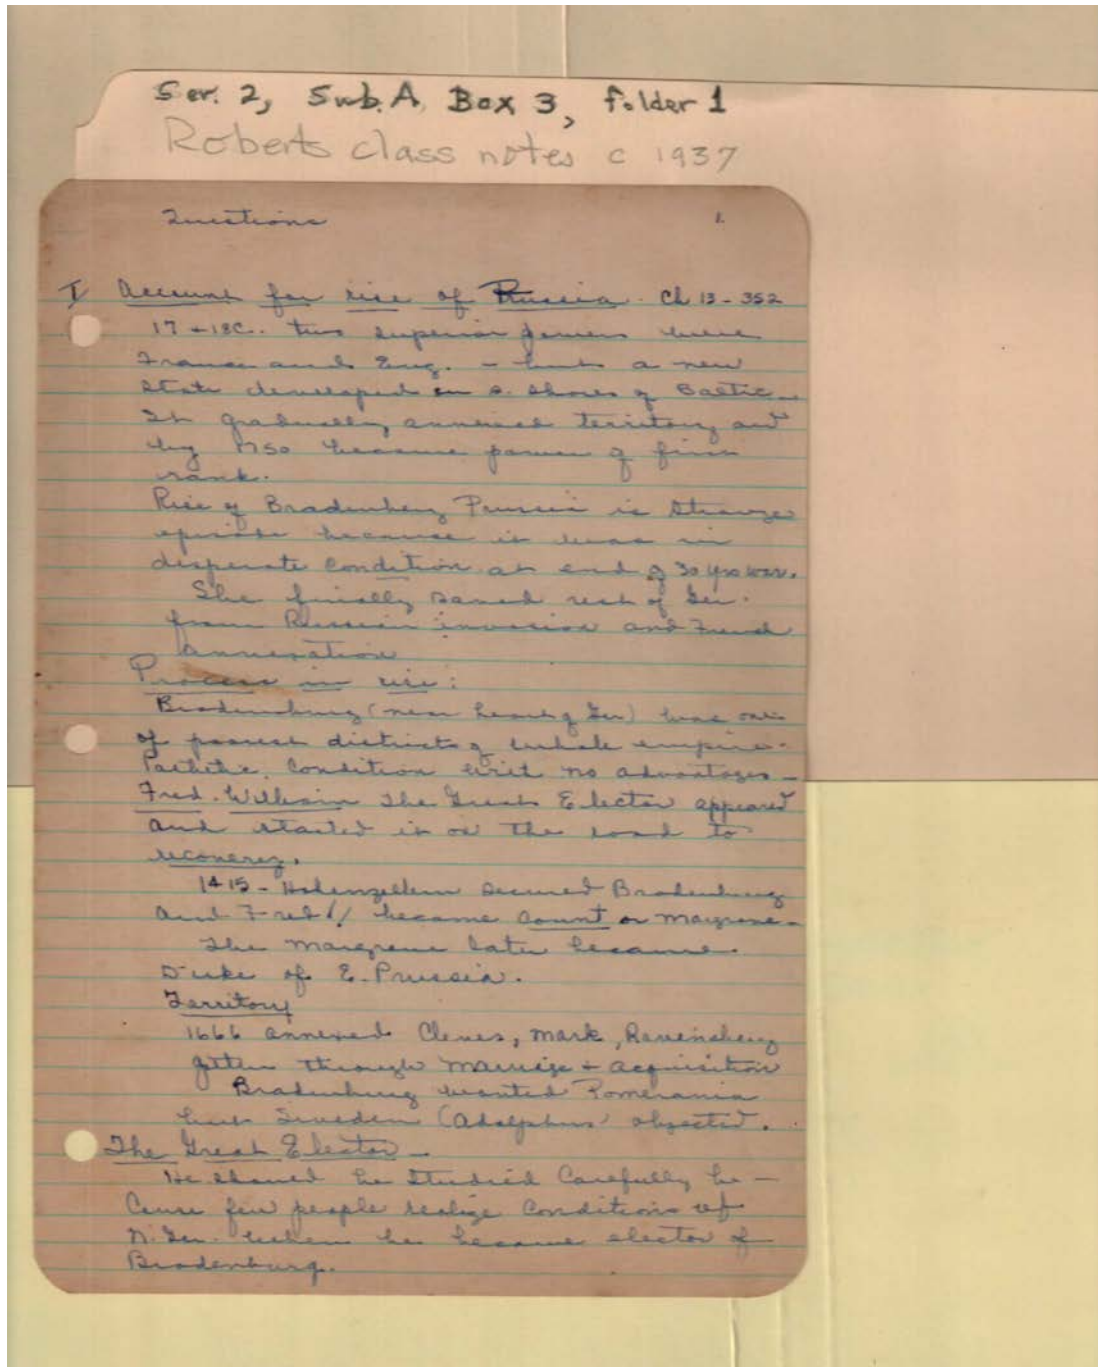 Ser. 2, Sub. A, Box 3, folder 1
Roberts class notes c 1937
Questions 1.
I Account for rise of Prussia. Ch 13 - 352
17 + 18C. two superior powers were
France and Eng. - but a new
state developed on s. shores of Baltic -
It gradually annexed territory and
by 1750 became power of first
rank.
Rise of Bradenberg Prussia is strange
episode because it was in
desperate condition at end of 30 yrs war.
She finally saved rest of Ger.
from Russian invasion and
annexation
Process in rise:
Bradenburg (near heart of Ger) was one
of poorest districts of whole empire -
Pathetic condition with no advantages -
Fred. William the Great Elector appeared
and started it on the road to
recovery.
1415 - Hohenzellern secured Bradenburg
and Fred became count or Margrave -
The Margrave later became
Duke of E. Prussia.
Territory
1666 annexed Cleves, Mark, Ravensberg
gotten through marriage + acquisition
Bradenburg wanted Pomerania
but Sweden (Adolphus) objected.
The Great Elector -
He should be studied carefully be -
cause few people realize conditions of
N. Ger. when he became elector of
Bradenburg.